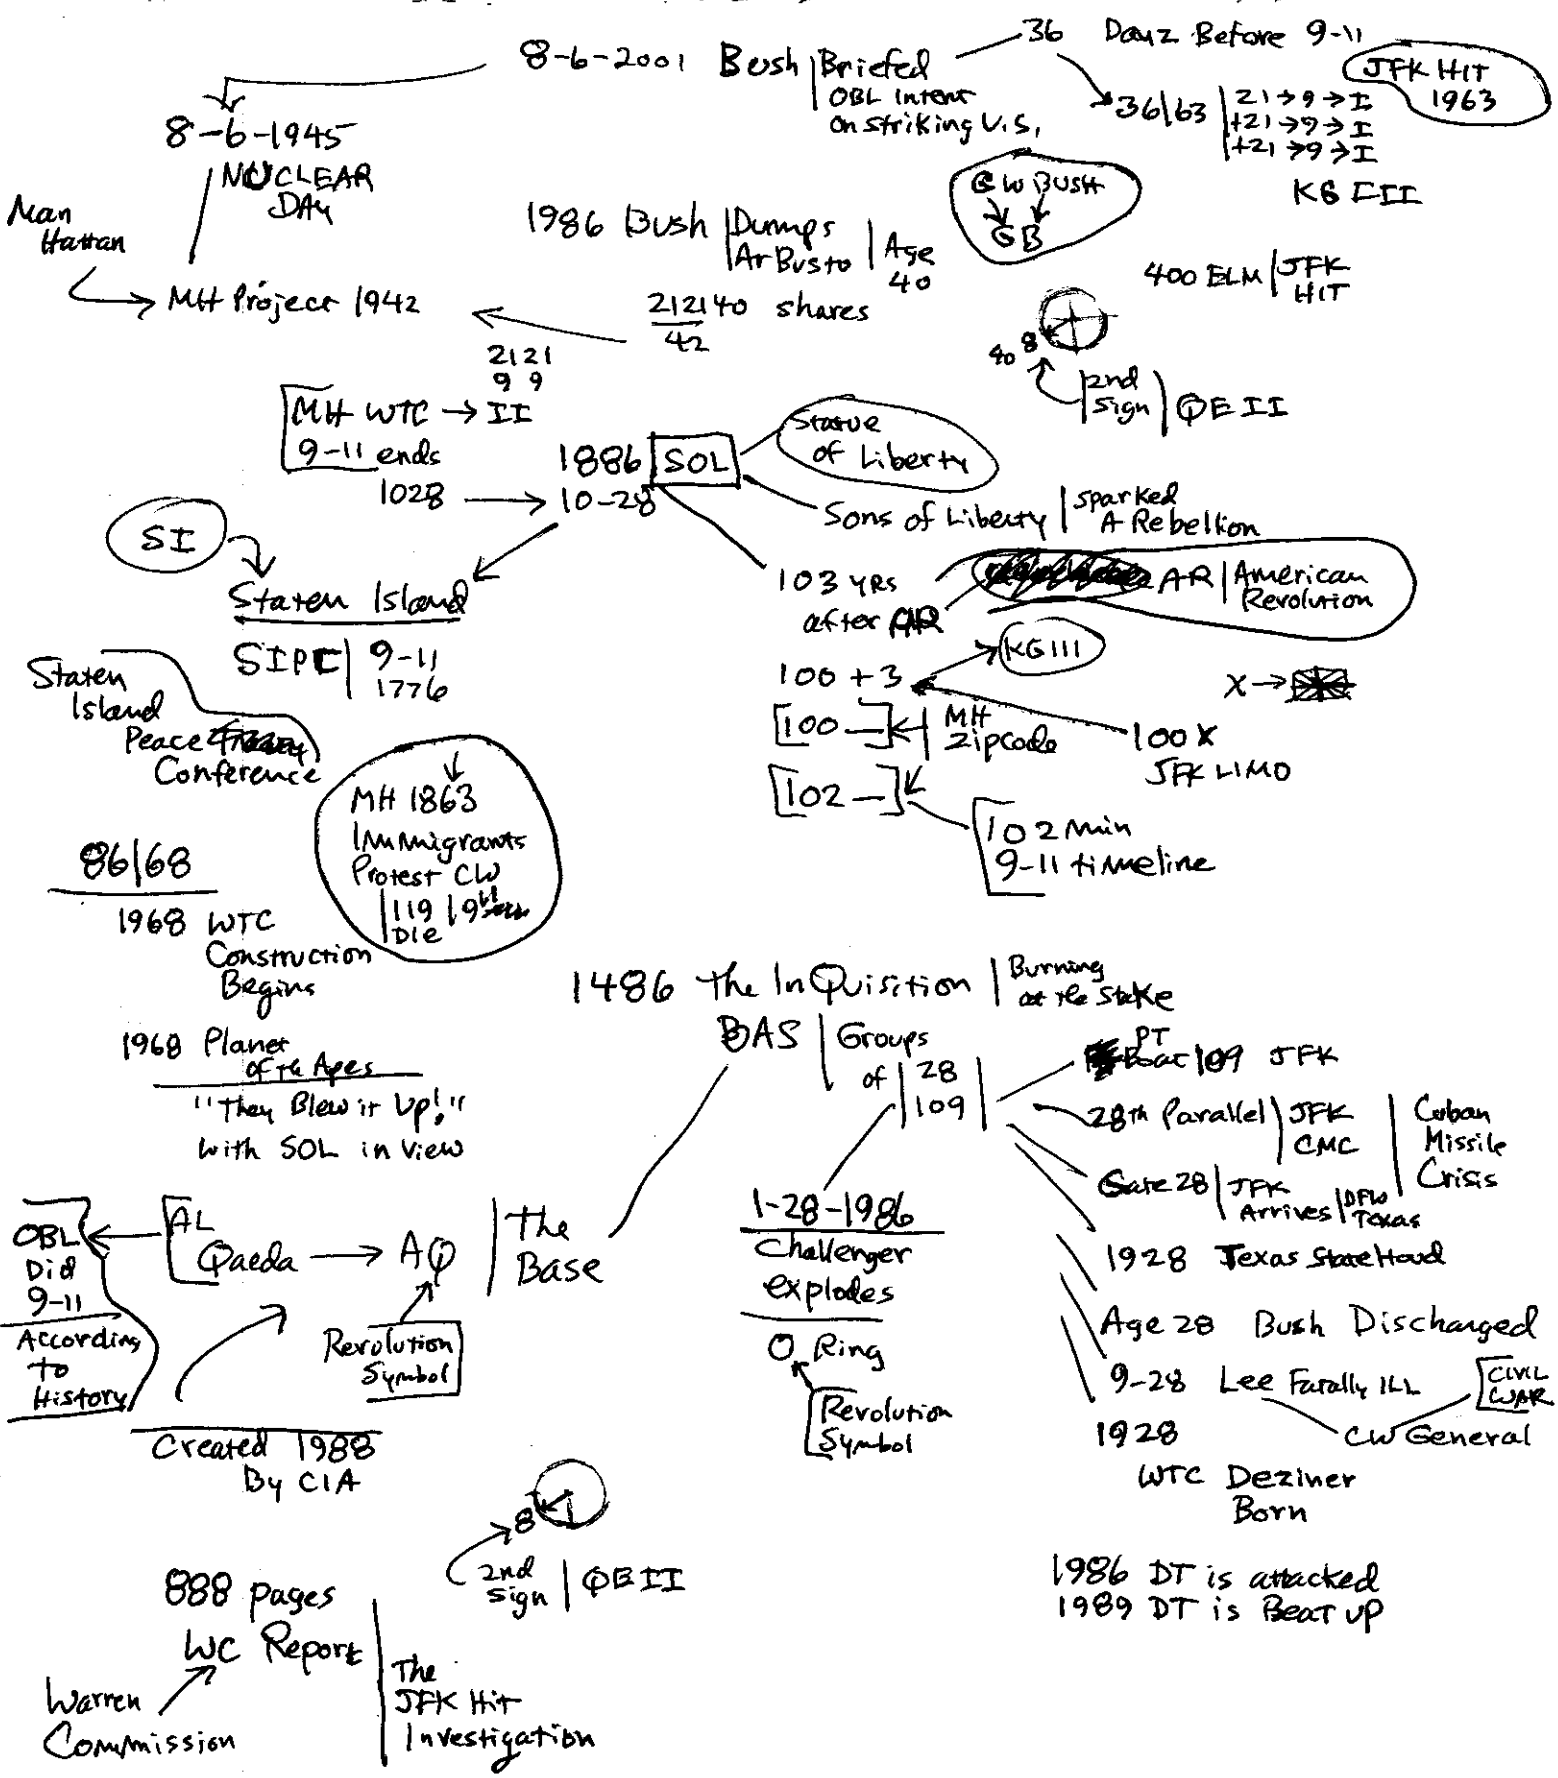 8-6-2001 Bush Briefed
OBL Intent
On Striking U.S.
36 Dayz Before 9-11
JFK HIT
1963
36/63
21→9→I
+21→9→I
+21→9→I
KG III
8-6-1945
NUCLEAR
DAY
Man
Hattan
MH Project 1942
1986 Bush Dumps
ArBusto
Age
40
212140 shares
42
GW BUSH
GB
400 ELM JFK
HIT
40 8
2nd
Sign
QE II
2121
9 9
MH WTC → II
9-11 ends
1028
1886 SOL
10-28
Statue
of Liberty
Sons of Liberty
Sparked
A Rebellion
SI
Staten Island
SIPC 9-11
1776
Staten
Island
Peace
Conference
103 yrs
after AR
AR American
Revolution
100 + 3
KG III
X →
[100 _]
MH
Zipcode
100 X
JFK LIMO
[102 _]
102 Min
9-11 timeline
MH 1863
Immigrants
Protest CW
119
Die
86/68
1968 WTC
Construction
Begins
1968 Planet
of the Apes
"They Blew it Up!"
with SOL in view
1486 the InQuisition
Burning
at the Stake
BAS Groups
of 28
109
PT
Boat 109 JFK
28th Parallel JFK
CMC
Cuban
Missile
Crisis
Gate 28 JFK
Arrives DFW
Texas
1928 Texas State Hood
Age 28 Bush Discharged
9-28 Lee Fatally ILL
CIVIL
WAR
CW General
1928
WTC Deziner
Born
1-28-1986
Challenger
explodes
O Ring
Revolution
Symbol
OBL
Did
9-11
According
to
History
AL
Qaeda → AQ
The
Base
Revolution
Symbol
Created 1988
By CIA
8
2nd
Sign
QE II
888 pages
WC Report
Warren
Commission
The
JFK Hit
Investigation
1986 DT is attacked
1989 DT is Beat up